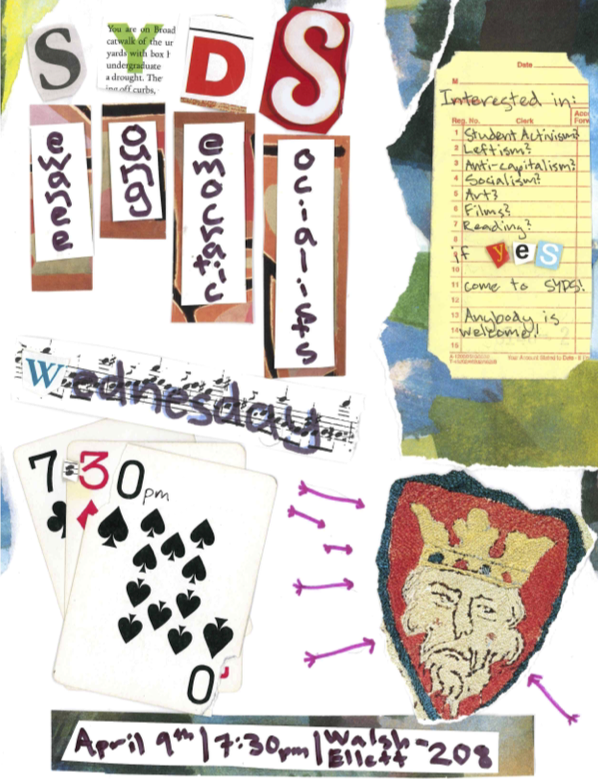 S Y D S
You are on Broad
catwalk of the ur
yards with box h
undergraduate
a drought. The
ing off curbs,
ewanee
oung
emocratic
ocialists
Date
M
Interested in:
Reg. No. Clerk
1 Student Activism?
2 Leftism?
3 Anti-capitalism?
4 Socialism?
5 Art?
6 Films?
7 Reading?
8
9 if yes
10
11 come to SYDS!
12
13 Anybody is
14 welcome!
15
Wednesday
7:30pm
0
April 9th | 7:30pm | Walsh-Ellett 208